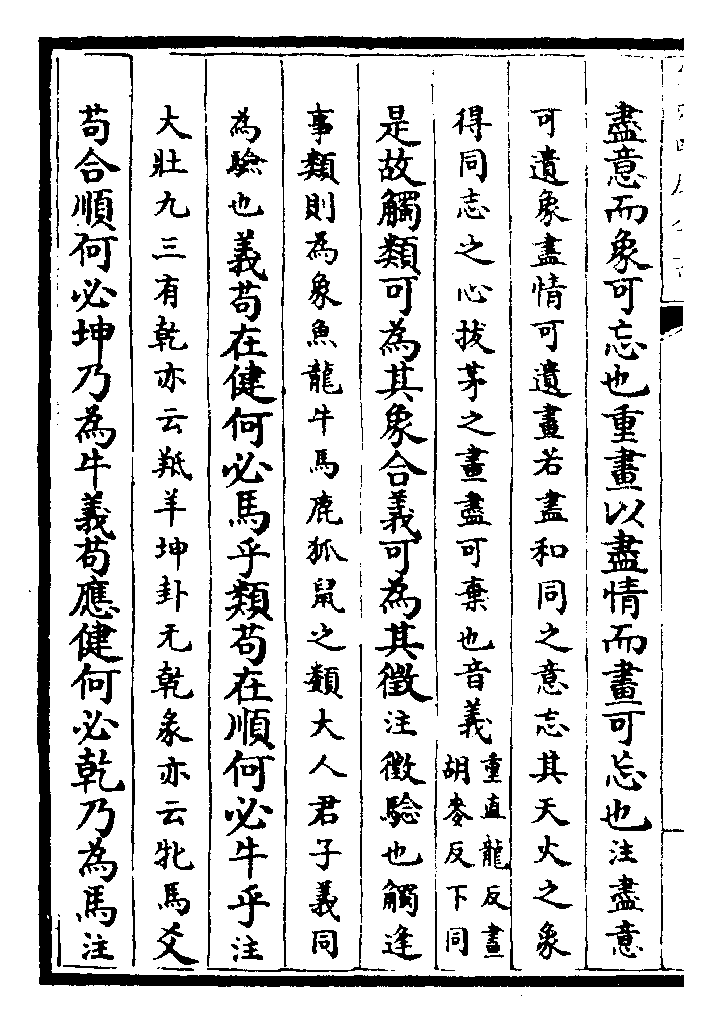 盡意而象可忘也重畫以盡情而畫可忘也注盡意
可遺象盡情可遺畫若盡和同之意忘其天火之象
得同志之心拔茅之畫盡可棄也音義重直龍反畫胡麥反下同
是故觸類可為其象合義可為其徵注徵驗也觸逢
事類則為象魚龍牛馬鹿狐鼠之類大人君子義同
為驗也義苟在健何必馬乎類苟在順何必牛乎注
大壯九三有乾亦云羝羊坤卦无乾彖亦云牝馬爻
苟合順何必坤乃為牛義苟應健何必乾乃為馬注